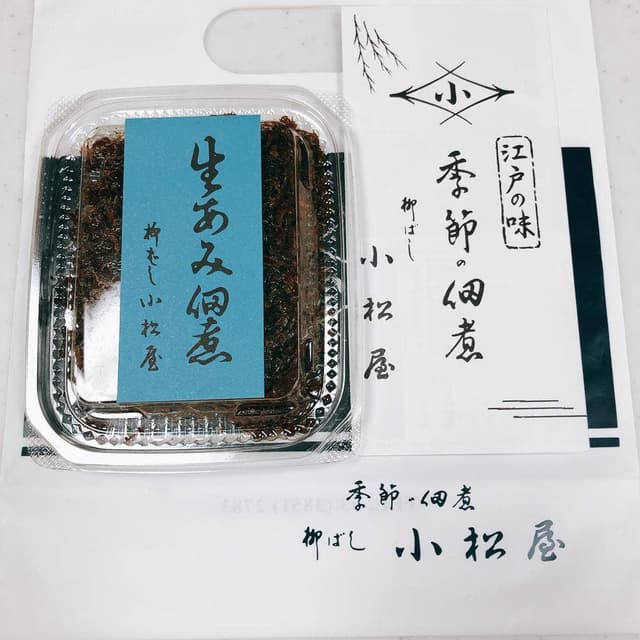 生あみ佃煮
柳ばし小松屋
小
江戸の味
季節の佃煮
柳ばし
小松屋
季節の佃煮
柳ばし 小松屋